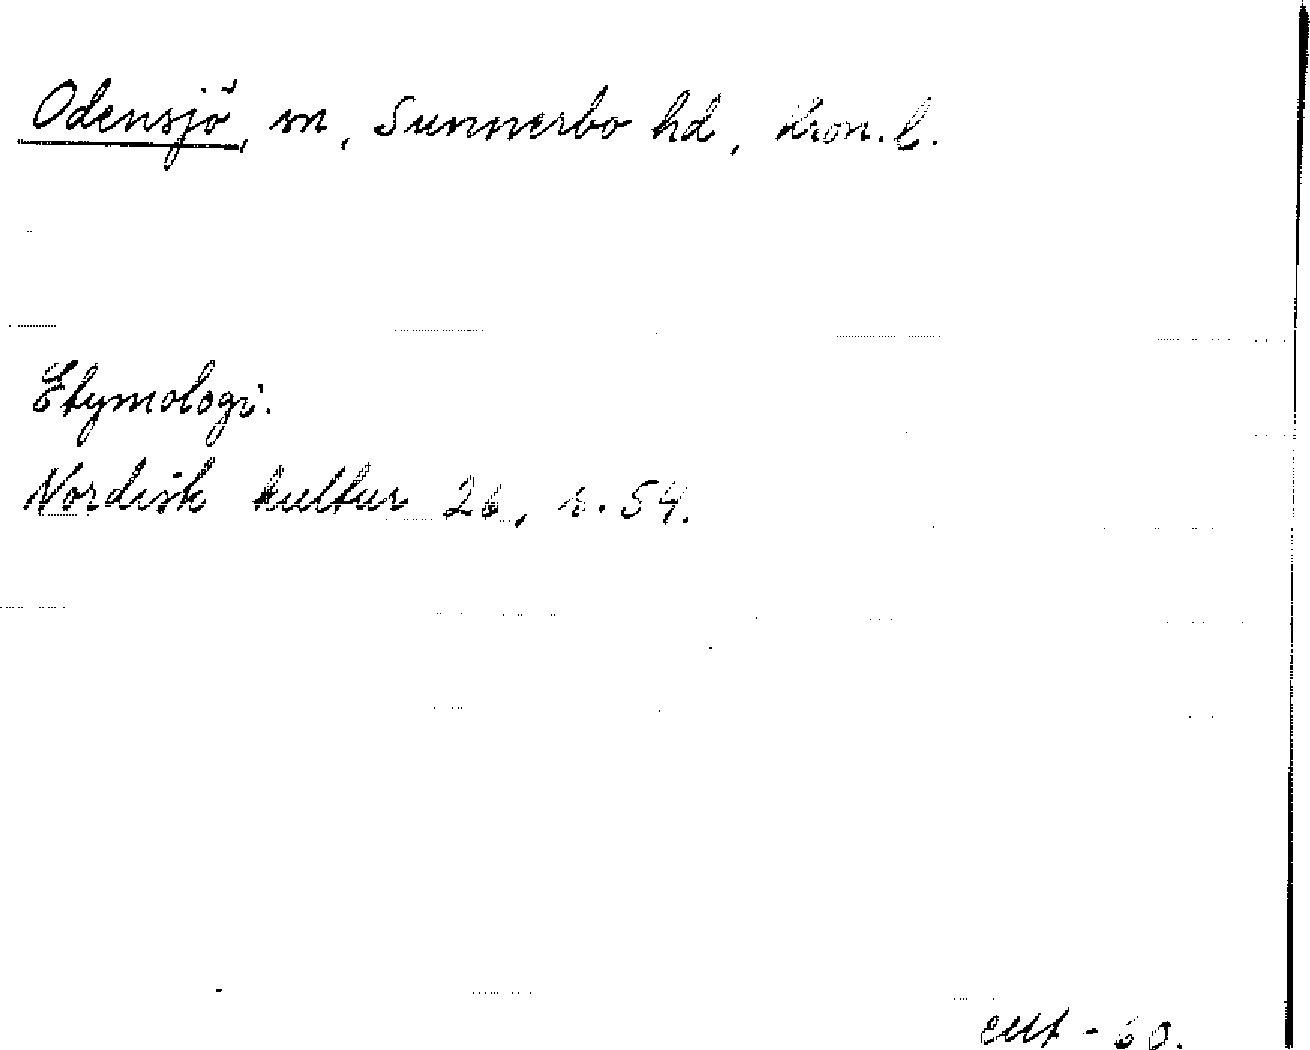 Odensjö, sn, Sunnerbo hd, Kron. l.
Etymologi.
Nordisk kultur 26, s. 54.
- 60.